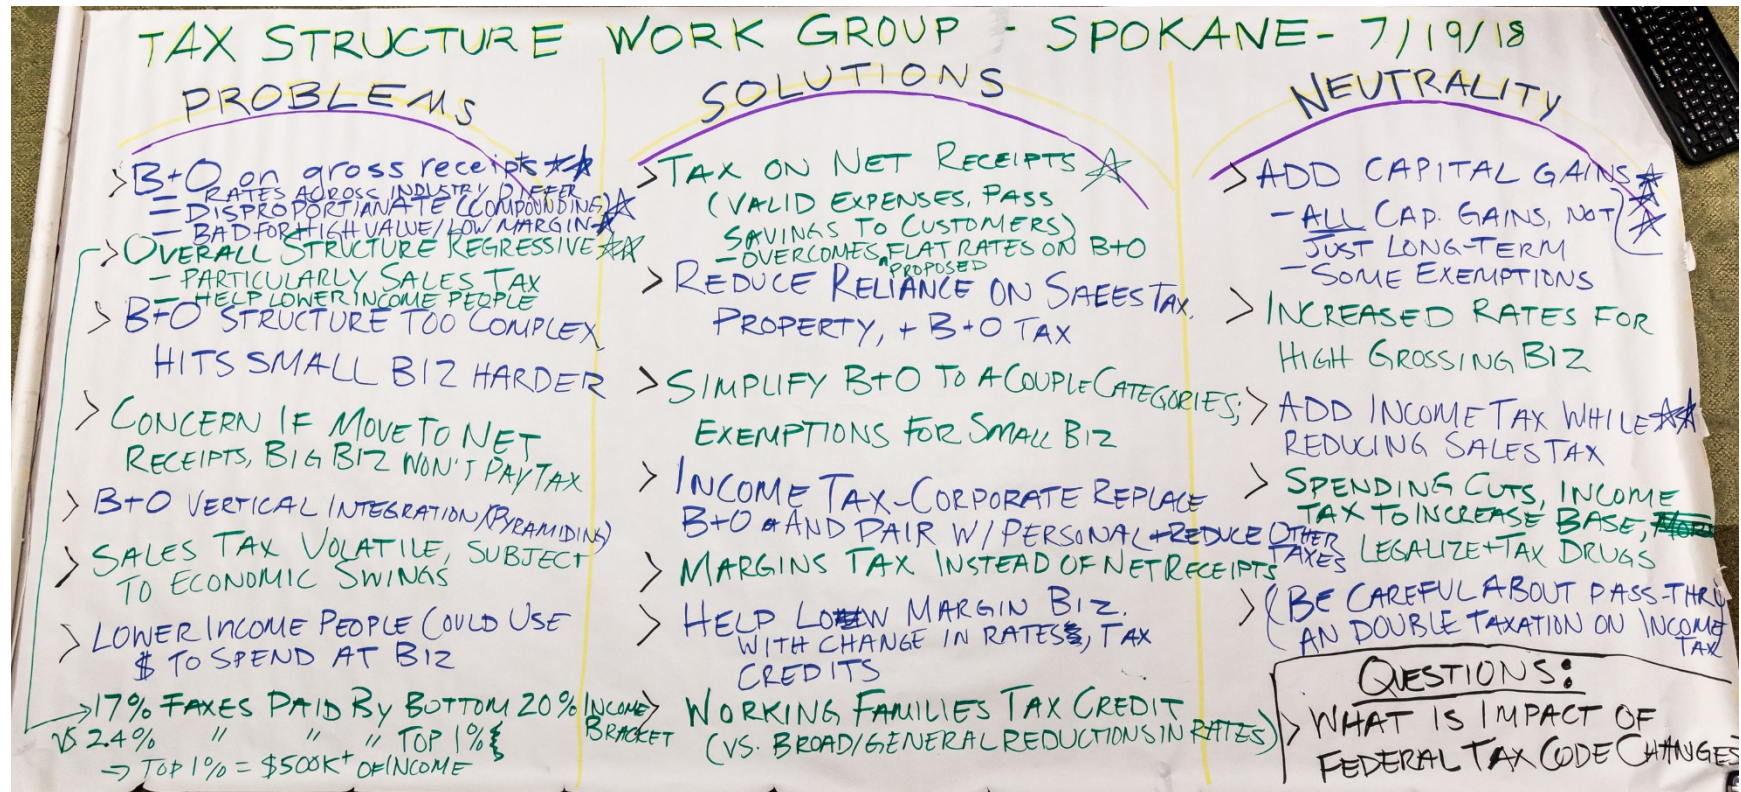 TAX STRUCTURE WORK GROUP - SPOKANE- 7/19/18
PROBLEMS
> B+O on gross receipts ☆☆
- RATES ACROSS INDUSTRY DIFFER
- DISPROPORTIANATE (COMPOUNDING) ☆
- BAD FOR HIGH VALUE/LOW MARGIN ☆
> OVERALL STRUCTURE REGRESSIVE ☆☆
- PARTICULARLY SALES TAX
- HELP LOWER INCOME PEOPLE
> B+O STRUCTURE TOO COMPLEX,
HITS SMALL BIZ HARDER
> CONCERN IF MOVE TO NET
RECEIPTS, BIG BIZ WON'T PAY TAX
> B+O VERTICAL INTEGRATION/(PYRAMIDING)
> SALES TAX VOLATILE, SUBJECT
TO ECONOMIC SWINGS
> LOWER INCOME PEOPLE COULD USE
$ TO SPEND AT BIZ
→ 17% TAXES PAID BY BOTTOM 20% INCOME
BRACKET
VS 2.4% " " " TOP 1%
→ TOP 1% = $500K+ OF INCOME
SOLUTIONS
> TAX ON NET RECEIPTS ☆
(VALID EXPENSES, PASS
SAVINGS TO CUSTOMERS)
- OVERCOMES ^PROPOSED FLAT RATES ON B+O
> REDUCE RELIANCE ON SALES TAX,
PROPERTY, + B+O TAX
> SIMPLIFY B+O TO A COUPLE CATEGORIES;
EXEMPTIONS FOR SMALL BIZ
> INCOME TAX-CORPORATE REPLACE
B+O AND PAIR W/ PERSONAL + REDUCE OTHER
TAXES
> MARGINS TAX INSTEAD OF NET RECEIPTS
> HELP LOW MARGIN BIZ.
WITH CHANGE IN RATES, TAX
CREDITS
> WORKING FAMILIES TAX CREDIT
(VS. BROAD/GENERAL REDUCTIONS IN RATES)
NEUTRALITY
> ADD CAPITAL GAINS ☆
- ALL CAP. GAINS, NOT ☆
JUST LONG-TERM
- SOME EXEMPTIONS
> INCREASED RATES FOR
HIGH GROSSING BIZ
> ADD INCOME TAX WHILE ☆☆
REDUCING SALES TAX
> SPENDING CUTS, INCOME
TAX TO INCREASE BASE,
LEGALIZE + TAX DRUGS
> (BE CAREFUL ABOUT PASS-THRU
AN DOUBLE TAXATION ON INCOME
TAX
QUESTIONS:
> WHAT IS IMPACT OF
FEDERAL TAX CODE CHANGES